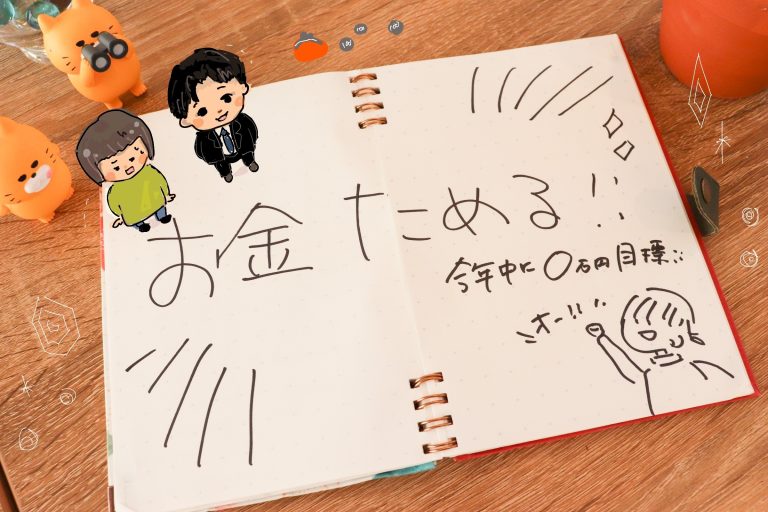 お金ためる!!
今年中に〇万円目標!!
オー!!